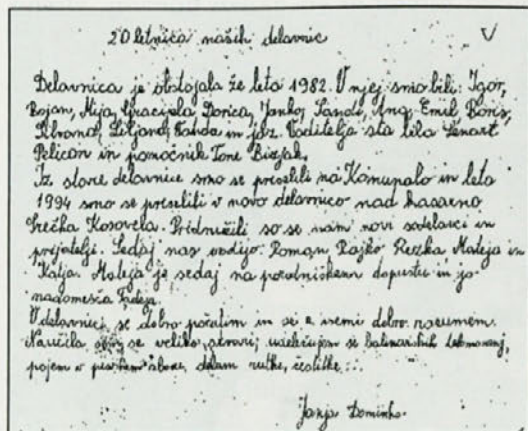 20 letnica naših delavnic
Delavnica je obstojala že leta 1982. V njej smo bili: Igor,
Bojan, Mija, Gracijela, Dorica, Janko, Sandi, Ana, Emil, Boris,
Ljiljana, Vanda in jaz. Voditelja sta bila Lenart
Pelicon in pomočnik Tone Bizjak.
Iz stare delavnice smo se preselili na Komunalo in leta
1994 smo se preselili v novo delavnico nad kasarno
Srečka Kosovela. Pridružili so se nam novi sodelavci in
prijatelji. Sedaj nas vodijo: Roman, Rajko, Rezka, Mateja in
Katja. Mateja je sedaj na porodniškem dopustu in jo
nadomešča
V delavnici se dobro počutim in se z vsemi dobro razumem.
Naučila sem se veliko stvari, udeležujem se balinarskih tekmovanj,
pojem v pevskem zboru, delam
Janja Dominko